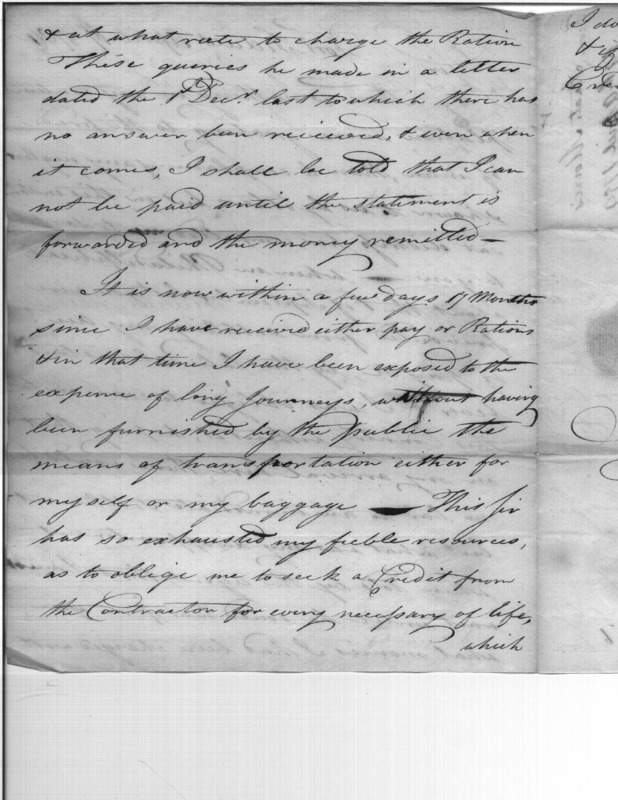 & at what rate to charge the Ration
These queries he made in a letter
dated the 1st Decr. last to which there has
no answer been received, & even when
it comes, I shall be told that I can
not be paid until the statement is
forwarded and the money remitted —
It is now within a few days 17 Months
since I have received either pay or Rations
& in that time I have been exposed to the
expense of long Journeys, without having
been furnished by the public the
means of transportation either for
myself or my baggage — This Sir
has so exhausted my fieble resources,
as to oblige me to seek a Credit from
the Contractor for every necessary of life,
which
I do